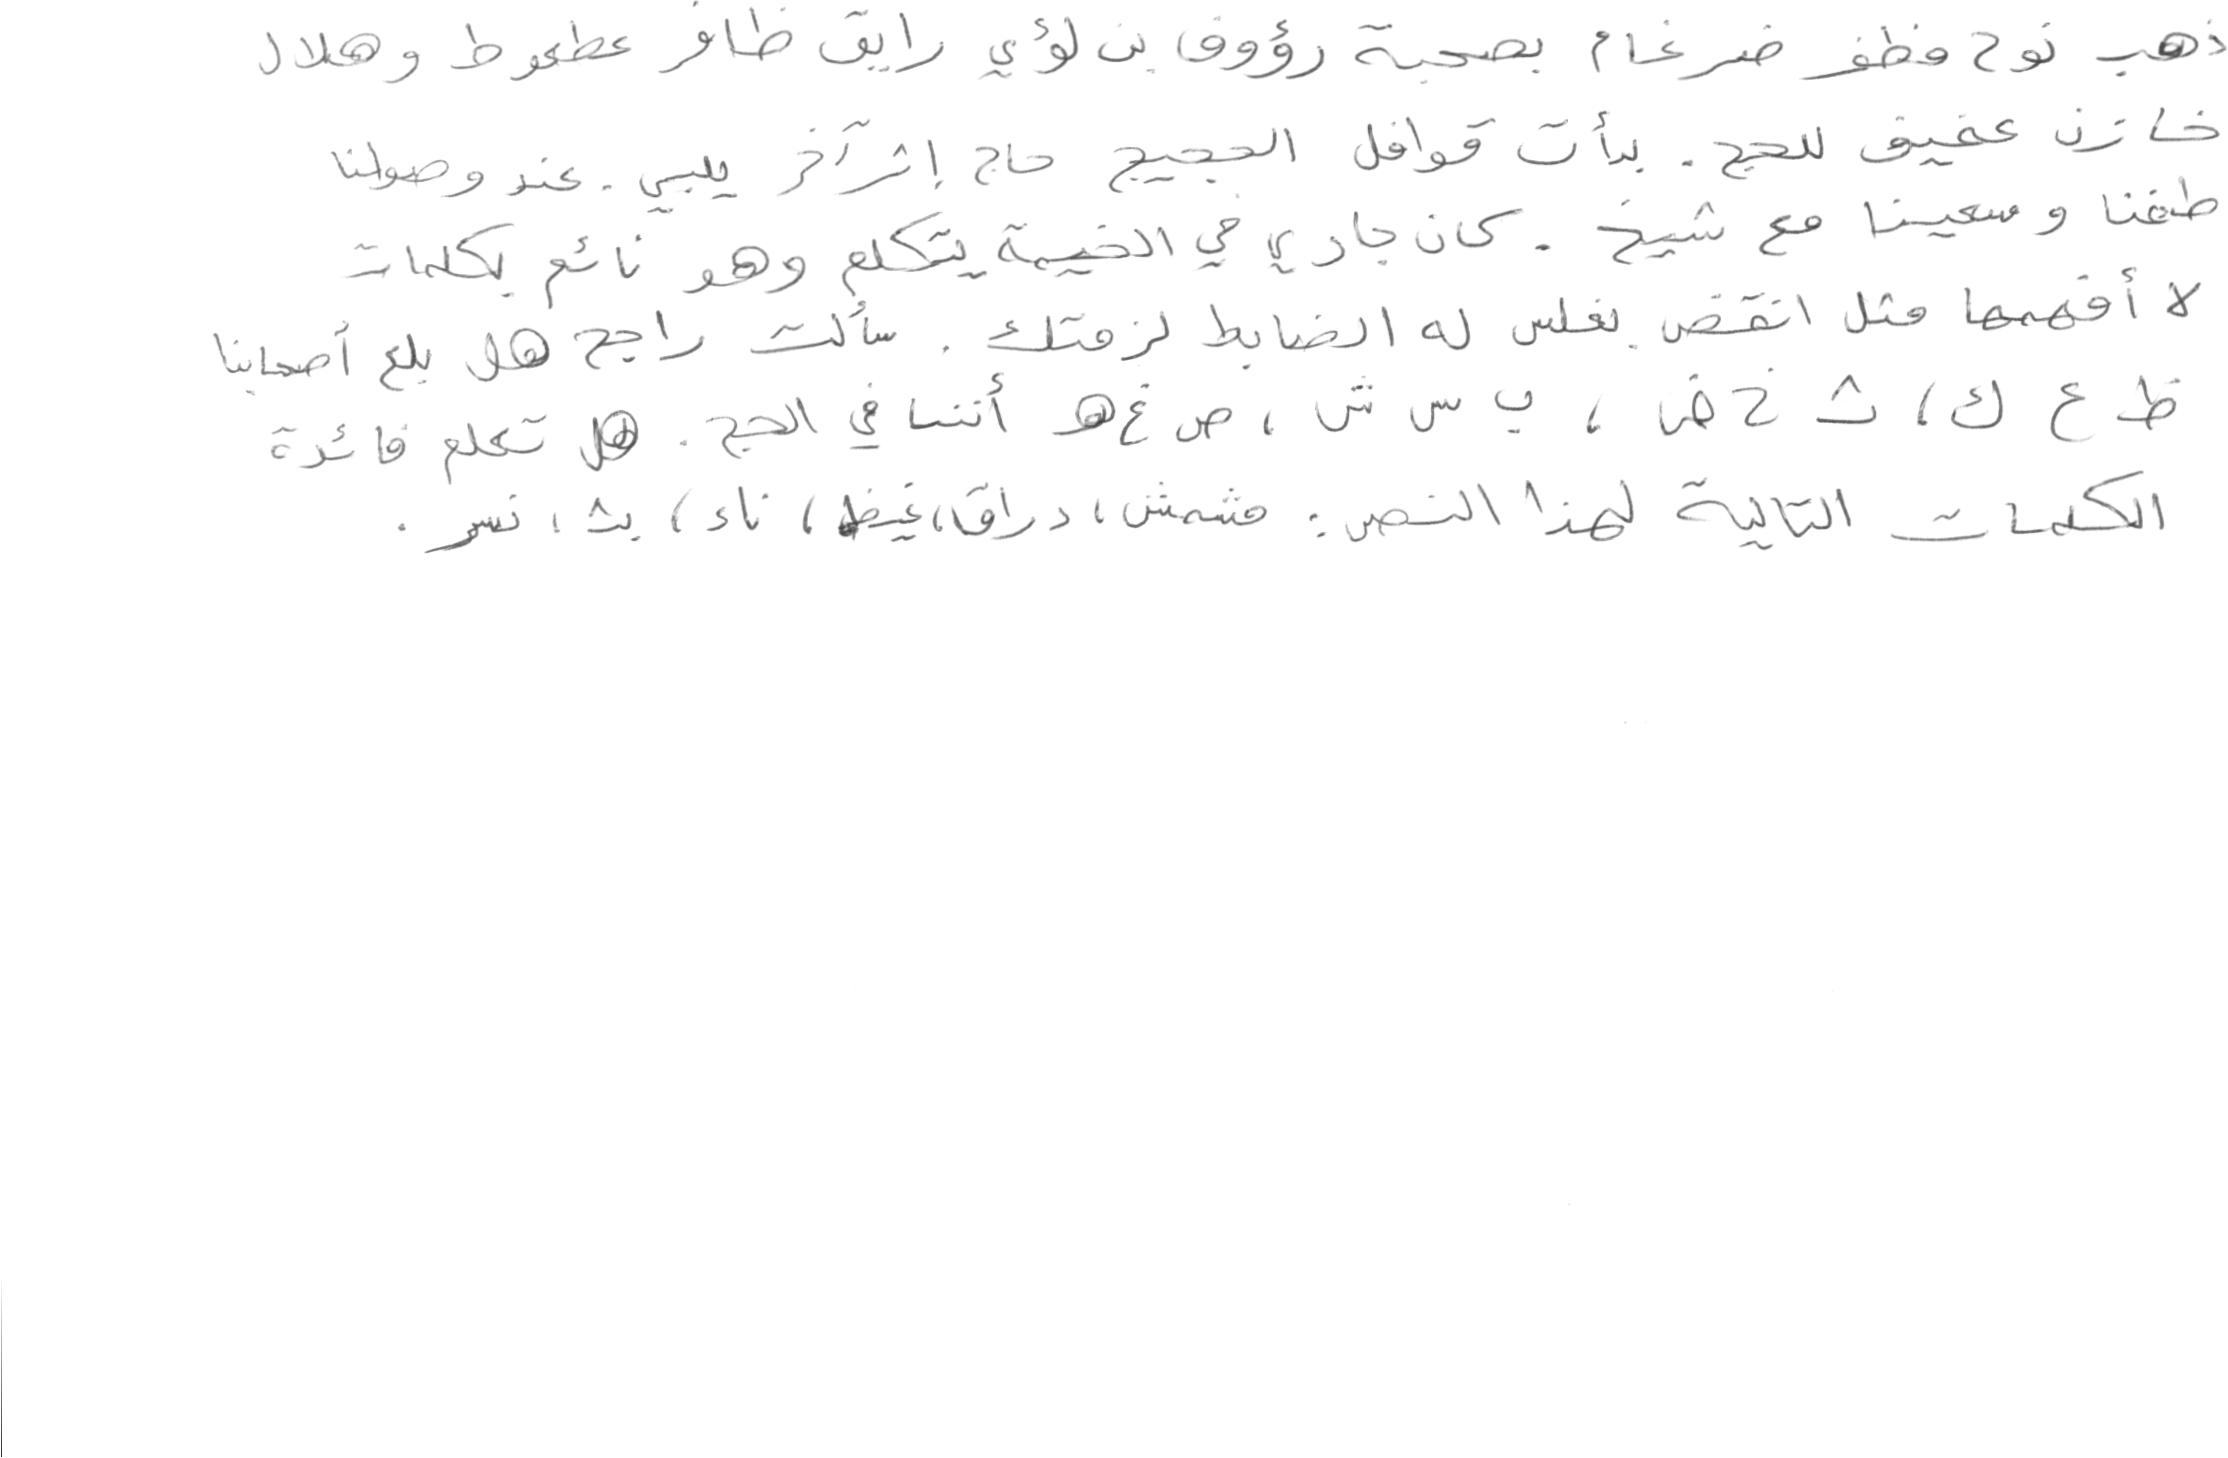 ذهب نوح مظفر ضرغام بصحبة رؤوف بن لؤي رايق ظافر عطعوط وهلال
خازن عفيف للحج . بدأت قوافل الحجيج حاج إثر آخر يلبي . عند وصولنا
طفنا وسعينا مع شيخ . كان جاري في الخيمة يتكلم وهو نائم بكلمات
لا أفهمها مثل انقض بغلس له الضابط لزمتك . سألت راجح هل بلغ أصحابنا
ظ ع ك ، ث خ ض ، ب س ش ، ص غ هـ أننا في الحج . هل تعلم فائدة
الكلمات التالية لهذا النص : مشمش ، دراق ، غيظ ، ناء ، بث ، نسر .